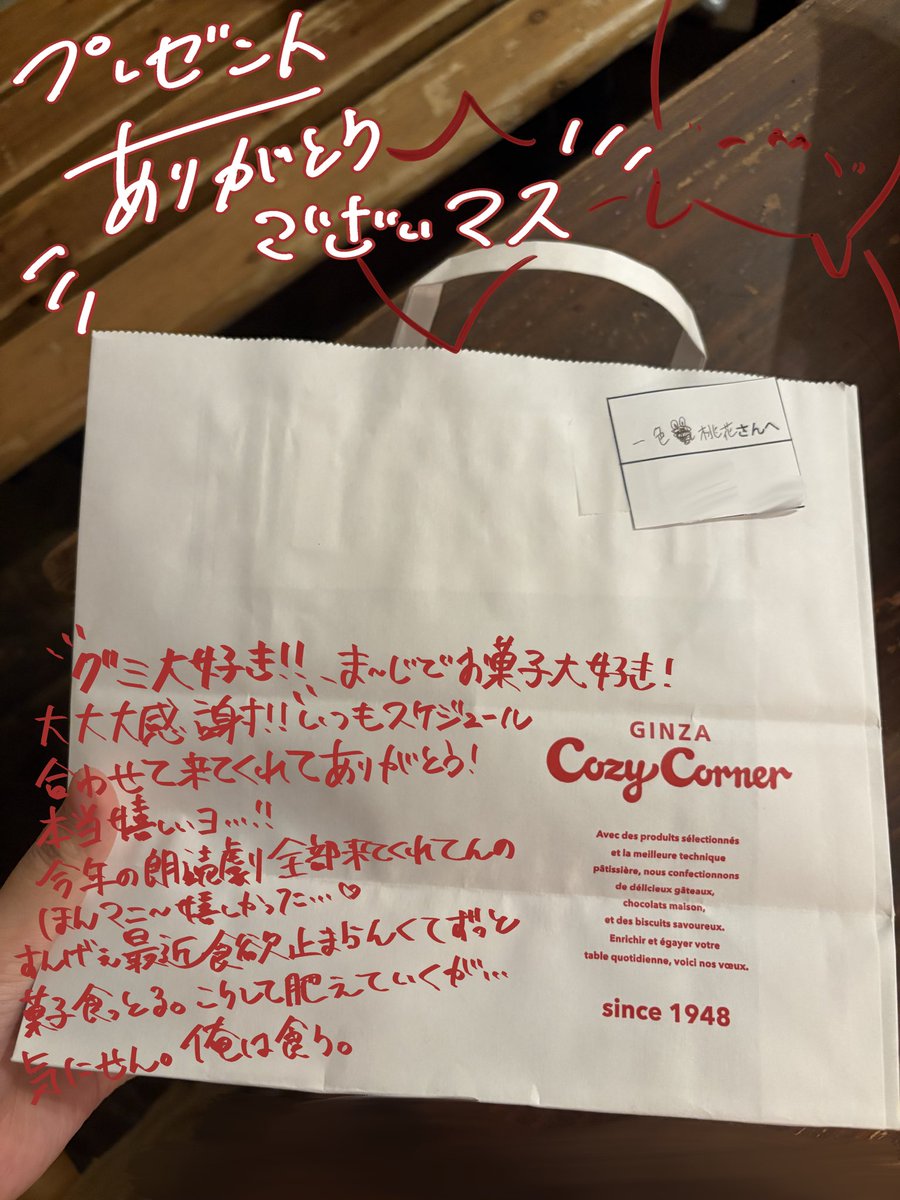 プレゼント
ありがとう
ございマス
一色桃花さんへ
グミ大好き!!、ま〜じでお菓子大好き!
大大大感謝!!いつもスケジュール
合わせて来てくれてありがとう!
本当嬉しいヨ…!!
今年の朗読劇全部来てくれてんの
ほんマニ〜嬉しかった…♡
すんげぇ最近食欲止まらんくてずっと
菓子食っとる。こうして肥えていくが…
気にせん。俺は食う。
GINZA
Cozy Corner
Avec des produits sélectionnés
et la meilleure technique
pâtissière, nous confectionnons
de délicieux gâteaux,
chocolats maison,
et des biscuits savoureux.
Enrichir et égayer votre
table quotidienne, voici nos vœux.
since 1948